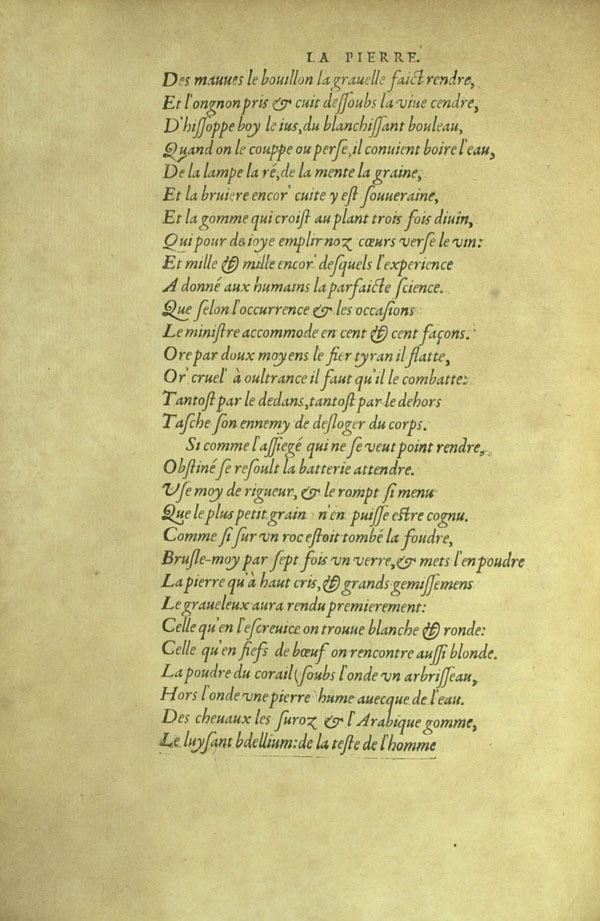 LA PIERRE.
Des mauues le bouillon la grauelle faict rendre,
Et l'ongnon pris & cuit deſſoubs la viue cendre,
D'hiſſoppe boy le ius, du blanchiſſant bouleau,
Quand on le couppe ou perſe, il conuient boire l'eau,
De la lampe la ré, de la mente la graine,
Et la bruiere encor' cuite y eſt ſouueraine,
Et la gomme qui croiſt au plant trois fois diuin,
Qui pour de ioye emplir noz cœurs verſe le vin:
Et mille & mille encor' deſquels l'experience
A donné aux humains la parfaicte ſcience.
Que ſelon l'occurrence & les occaſions
Le miniſtre accommode en cent & cent façons.
Ore par doux moyens le fier tyran il flatte,
Or' cruel à oultrance il faut qu'il le combatte:
Tantoſt par le dedans, tantoſt par le dehors
Taſche ſon ennemy de deſloger du corps.
Si comme l'aſſiegé qui ne ſe veut point rendre,
Obſtiné ſe reſoult la batterie attendre.
Vſe moy de rigueur, & le rompt ſi menu
Que le plus petit grain n'en puiſſe eſtre cognu.
Comme ſi ſur vn roc eſtoit tombé la foudre,
Bruſle-moy par ſept fois vn verre, & mets l'en poudre
La pierre qu'à haut cris, & grands gemiſſemens
Le graueleux aura rendu premierement:
Celle qu'en l'eſcreuice on trouue blanche & ronde:
Celle qu'en fiefs de bœuf on rencontre auſſi blonde.
La poudre du corail (ſoubs l'onde vn arbriſſeau,
Hors l'onde vne pierre hume auecque de l'eau.
Des cheuaux les ſuroz & l'Arabique gomme,
Le luyſant bdellium: de la teſte de l'homme